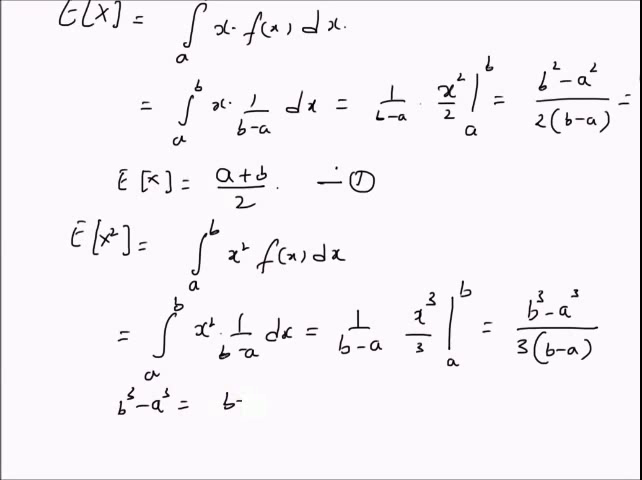 E[X] = ∫ₐ x·f(x) dx.
= ∫ₐᵇ x· 1/(b-a) dx = 1/(b-a) · x²/2 |ₐᵇ = (b²-a²)/(2(b-a)) =
E[x] = (a+b)/2. — ①
E[x²] = ∫ₐᵇ x² f(x) dx
= ∫ₐᵇ x²· 1/(b-a) dx = 1/(b-a) x³/3 |ₐᵇ = (b³-a³)/(3(b-a))
b³-a³ = b-